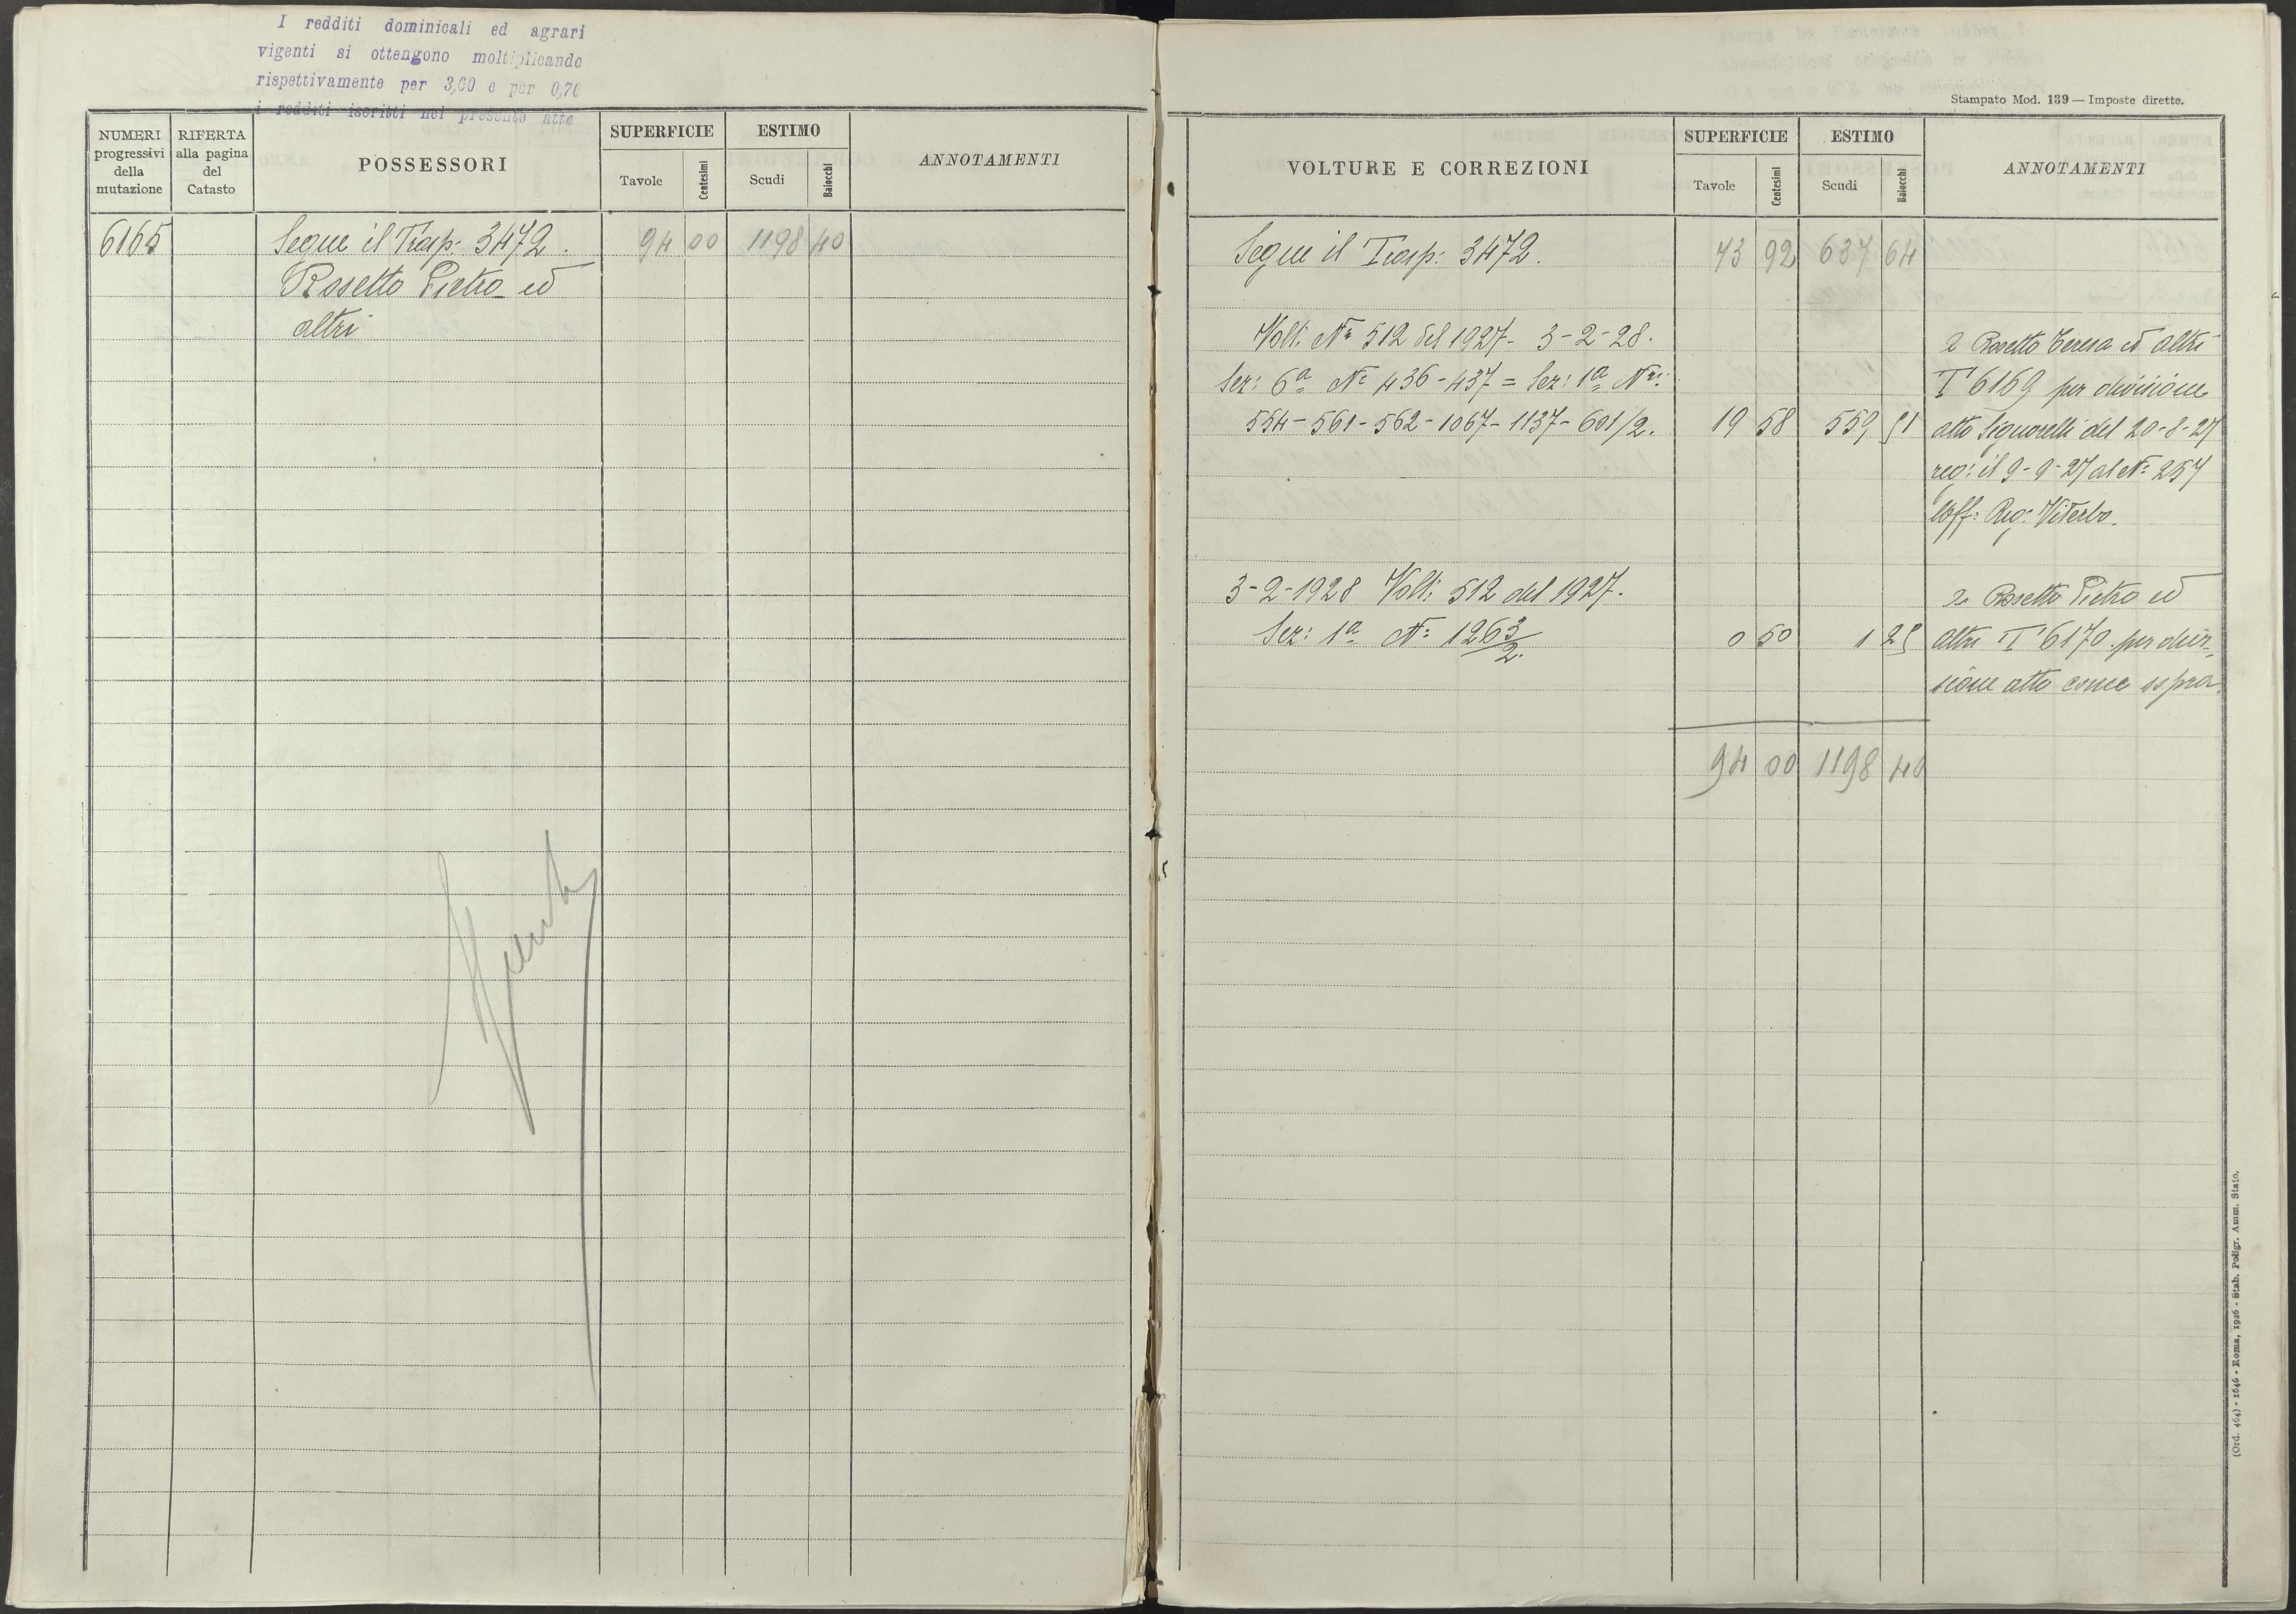 I redditi dominicali ed agrari
vigenti si ottengono moltiplicando
rispettivamente per 3,60 e per 0,70
i redditi iscritti nel presente atto
NUMERI progressivi della mutazione
RIFERTA alla pagina del Catasto
POSSESSORI
SUPERFICIE
Tavole
Centesimi
ESTIMO
Scudi
Baiocchi
ANNOTAMENTI
6165 Segue il Trasp: 3472. 94 00 1198 40
Rosetto Pietro ed
altri
Stampato Mod. 139 — Imposte dirette.
VOLTURE E CORREZIONI
SUPERFICIE
Tavole
Centesimi
ESTIMO
Scudi
Baiocchi
ANNOTAMENTI
Segue il Trasp: 3472. 73 92 637 64
Volt: N° 512 del 1927 - 3-2-28. a Rosetto Teresa ed altri
Sez: 6a N° 436-437 = Sez: 1a Nri: T 6169 per divisione
554-561-562-1067-1137-601/2. 19 58 559 51 atto Signorelli del 20-8-27
reg: il 9-9-27 al N° 257
Uff: Reg: Viterbo.
3-2-1928 Volt: 512 del 1927. a Rosetto Pietro ed
Sez: 1a N: 1263/2. 0 50 1 25 altri T 6170 per divi-
sione atto come sopra.
94 00 1198 40
(Ord. 464) - 1646 - Roma, 1926 - Stab. Poligr. Amm. Stato.